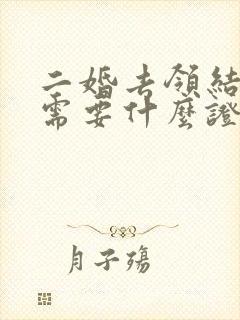 二婚去領結
需要什麼證
月子殤